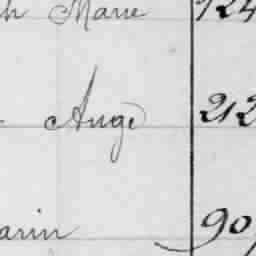 h Marie 124
Ange 212
arin 90